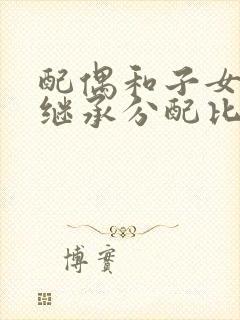 配偶和子女
继承分配比
博实